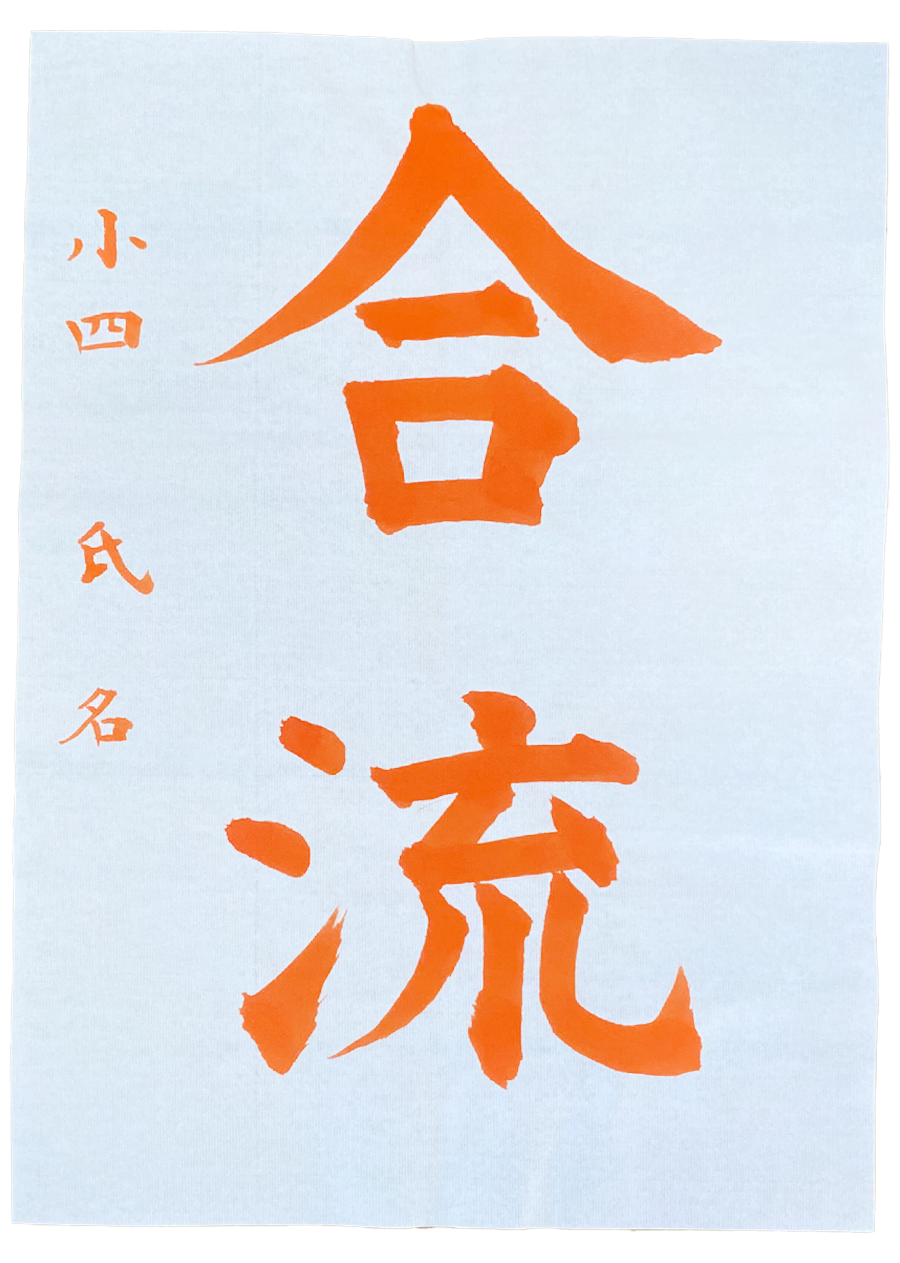 合流
小四 氏名